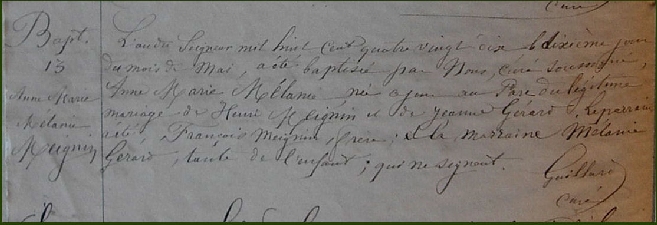 Curé
Bapt.
13
Anne Marie
Mélanie
Meignin
L'an du Seigneur mil huit cent quatre vingt dix le dixième jour
du mois de Mai, a été baptisée par Nous, curé soussigné,
Anne Marie Mélanie née a jour au Père du légitime
mariage de Henri Meignin et de Jeanne Gérard. le parrain
a été François Meignin, frère; & la marraine Mélanie
Gérard, tante de l'enfant; qui ne signent.
Guillard
curé